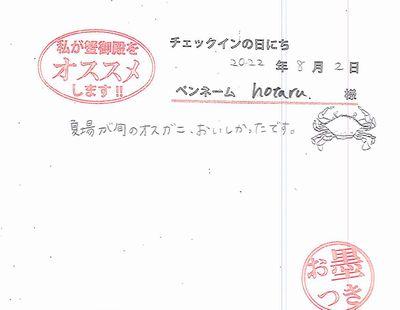 私が蟹御殿を
オススメ
します!!
チェックインの日にち
2022 年 8 月 2 日
ペンネーム hotaru. 様
夏場が旬のオスガニ、おいしかったです。
お墨
つき